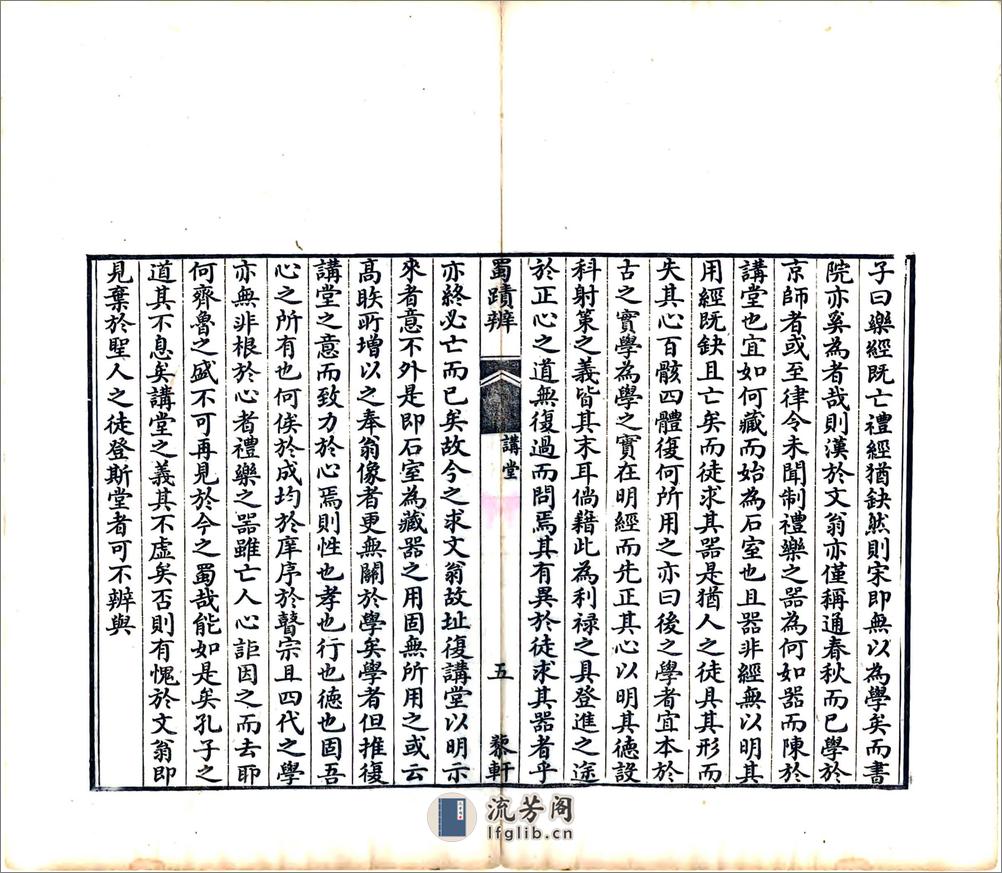 子曰樂經既亡禮經猶缺然則宋即無以為學矣而書
院亦奚為者哉則漢於文翁亦僅稱通春秋而已學於
京師者或至律令未聞制禮樂之器為何如器而陳於
講堂也宜如何藏而始為石室也且器非經無以明其
用經既缺且亡矣而徒求其器是猶人之徒具其形而
失其心百骸四體復何所用之亦曰後之學者宜本於
古之實學為學之實在明經而先正其心以明其德設
科射策之義皆其末耳倘藉此為利祿之具登進之途
於正心之道無復過而問焉其有異於徒求其器者乎
蜀蹟辨 講堂 五 藜軒
亦終必亡而已矣故今之求文翁故址復講堂以明示
來者意不外是即石室為藏器之用固無所用之或云
高䀢所增以之奉翁像者更無關於學矣學者但推復
講堂之意而致力於心焉則性也孝也行也德也固吾
心之所有也何俟於成均於庠序於瞽宗且四代之學
亦無非根於心者禮樂之器雖亡人心詎因之而去耶
何齊魯之盛不可再見於今之蜀哉能如是矣孔子之
道其不息矣講堂之義其不虛矣否則有愧於文翁即
見棄於聖人之徒登斯堂者可不辨與
流芳阁
lfglib.cn